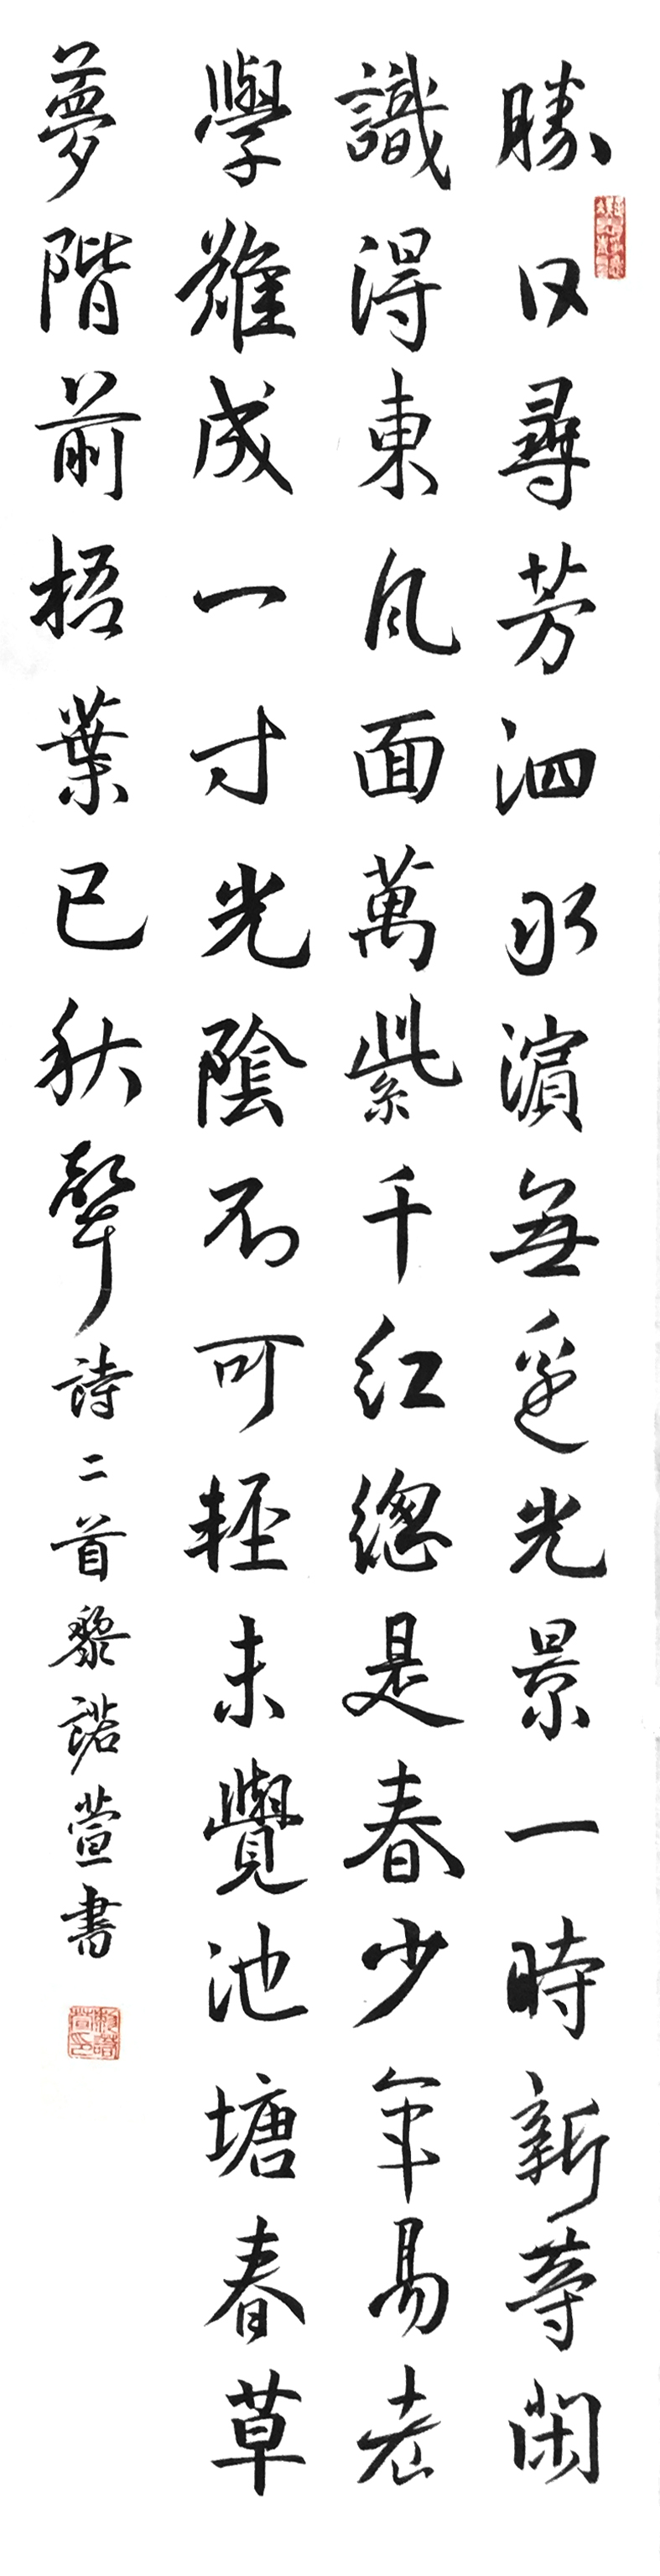 勝日尋芳泗水濱無邊光景一時新等閑
識得東風面萬紫千紅總是春少年易老
學難成一寸光陰不可輕未覺池塘春草
夢階前梧葉已秋聲詩二首黎諾萱書